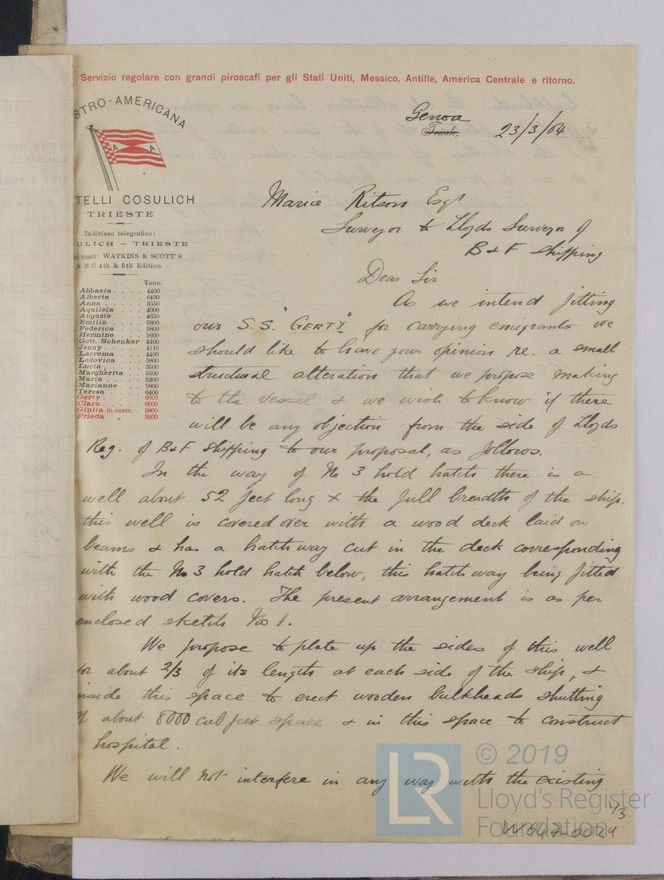 Servizio regolare con grandi piroscafi per gli Stati Uniti, Messico, Antille, America Centrale e ritorno.
STRO-AMERICANA
A A
TELLI COSULICH
TRIESTE
Indirizzo telegrafico:
ULICH – TRIESTE
usati: WATKINS & SCOTT'S
A B C 4th & 5th Edition.
Tonn.
Abbazia . . . . 4400
Alberta . . . . 6400
Anna . . . . 3550
Aquileia . . . . 4000
Auguste . . . . 4650
Emilia . . . . 5800
Federica . . . . 5800
Hermine . . . . 5600
Gott. Schenker 4400
Jenny . . . . 4140
Lacroma . . . . 4400
Lodovica . . . . 5800
Lucia . . . . 5500
Margherita . . 5500
Maria . . . . 5200
Marianne . . . 5800
Teresa . . . . 6400
Gerty . . . . 6000
Clara . . . . 6000
Giulia in costr. 5800
Frieda " 5200
Genoa
Trieste, 23/3/04
Ritson Esqr
Surveyor to Lloyds Surveyor of
B & F Shipping
Dear Sir
As we intend fitting
our S.S. "GERTY" for carrying emigrants we
should like to have your opinion re. a small
structural alteration that we propose making
to the vessel & we wish to know if there
will be any objection from the side of Lloyds
Reg. of B & F Shipping to our proposal, as follows.
In the way of No 3 hold hatch there is a
well about 52 feet long x the full breadth of the ship.
this well is covered over with a wood deck laid on
beams & has a hatchway cut in the deck corresponding
with the No 3 hold hatch below, this hatchway being fitted
with wood covers. The present arrangement is as per
enclosed sketch No 1.
We propose to plate up the sides of this well
for about 2/3 of its length at each side of the ship, &
inside this space to erect wooden bulkheads shutting
off about 8000 cub feet space & in this space to construct
hospital.
We will not interfere in any way with the existing
1/3
LR
© 2019
Lloyd's Register
Foundation
W647-0024